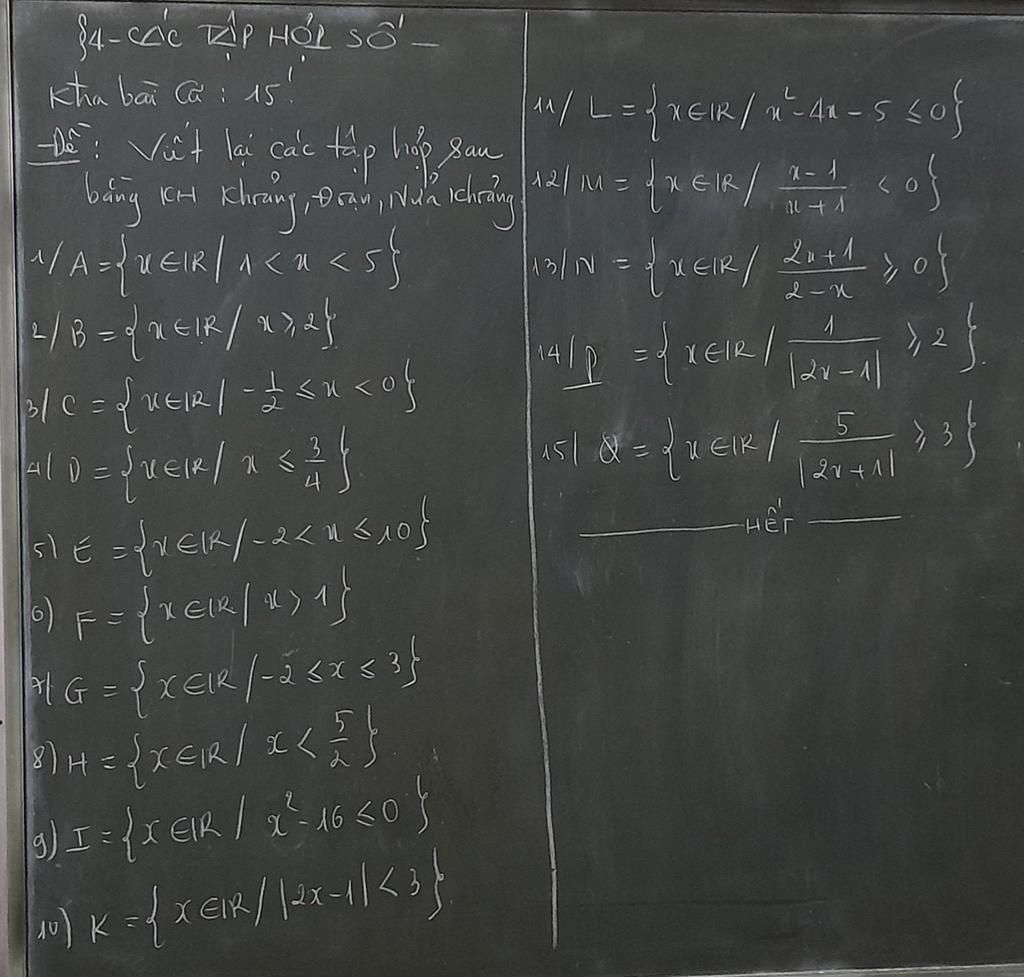 §4 - CÁC TẬP HỢP SỐ -
Ktra bài cũ : 15'
Đề : Viết lại các tập hợp sau
bằng KH Khoảng, Đoạn, Nửa khoảng
1/ A = {x ∈ IR / 1 < x < 5}
2/ B = {x ∈ IR / x ≥ 2}
3/ C = {x ∈ IR / -1/2 ≤ x < 0}
4/ D = {x ∈ IR / x ≤ 3/4}
5) E = {x ∈ IR / -2 < x ≤ 10}
6) F = {x ∈ IR / x > 1}
7/ G = {x ∈ IR / -2 ≤ x ≤ 3}
8) H = {x ∈ IR / x < 5/2}
9) I = {x ∈ IR / x² - 16 ≤ 0}
10) K = {x ∈ IR / |2x - 1| < 3}
11/ L = {x ∈ IR / x² - 4x - 5 ≤ 0}
12/ M = {x ∈ IR / (x - 1)/(x + 1) < 0}
13/ N = {x ∈ IR / (2x + 1)/(2 - x) ≥ 0}
14/ P = {x ∈ IR / 1/|2x - 1| ≥ 2}.
15/ Q = {x ∈ IR / 5/|2x + 1| ≥ 3}
HẾT